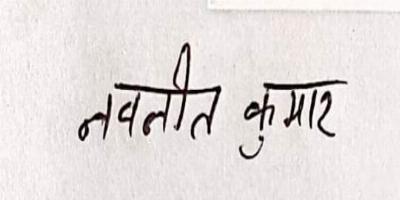 नवनीत कुमार